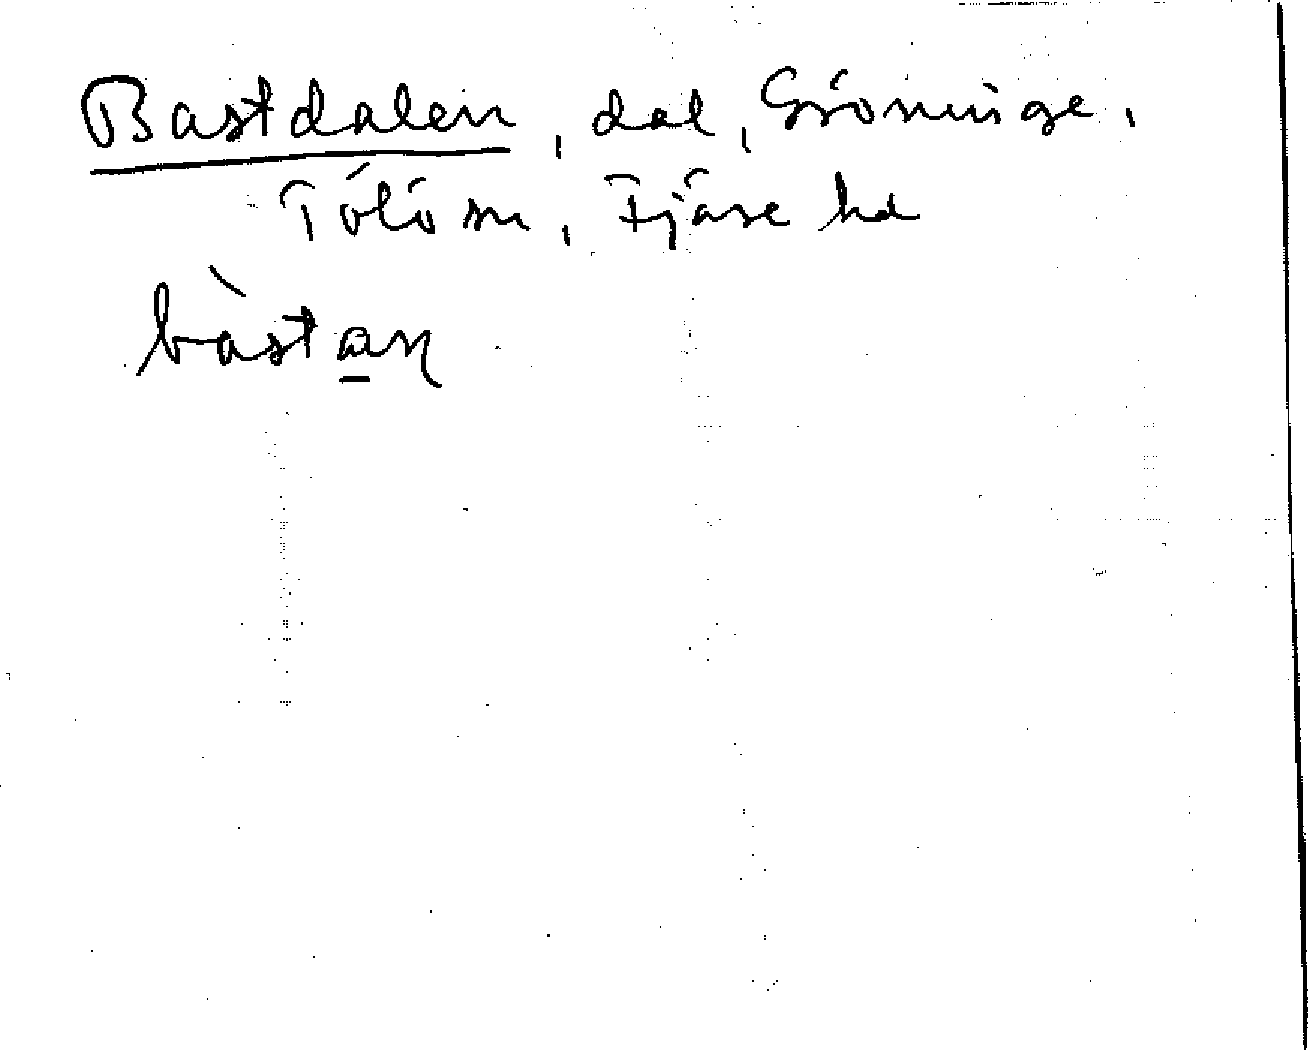 Bastdalen, dal, Gröninge,
Tölö sn, Fjäre hd
bàstan